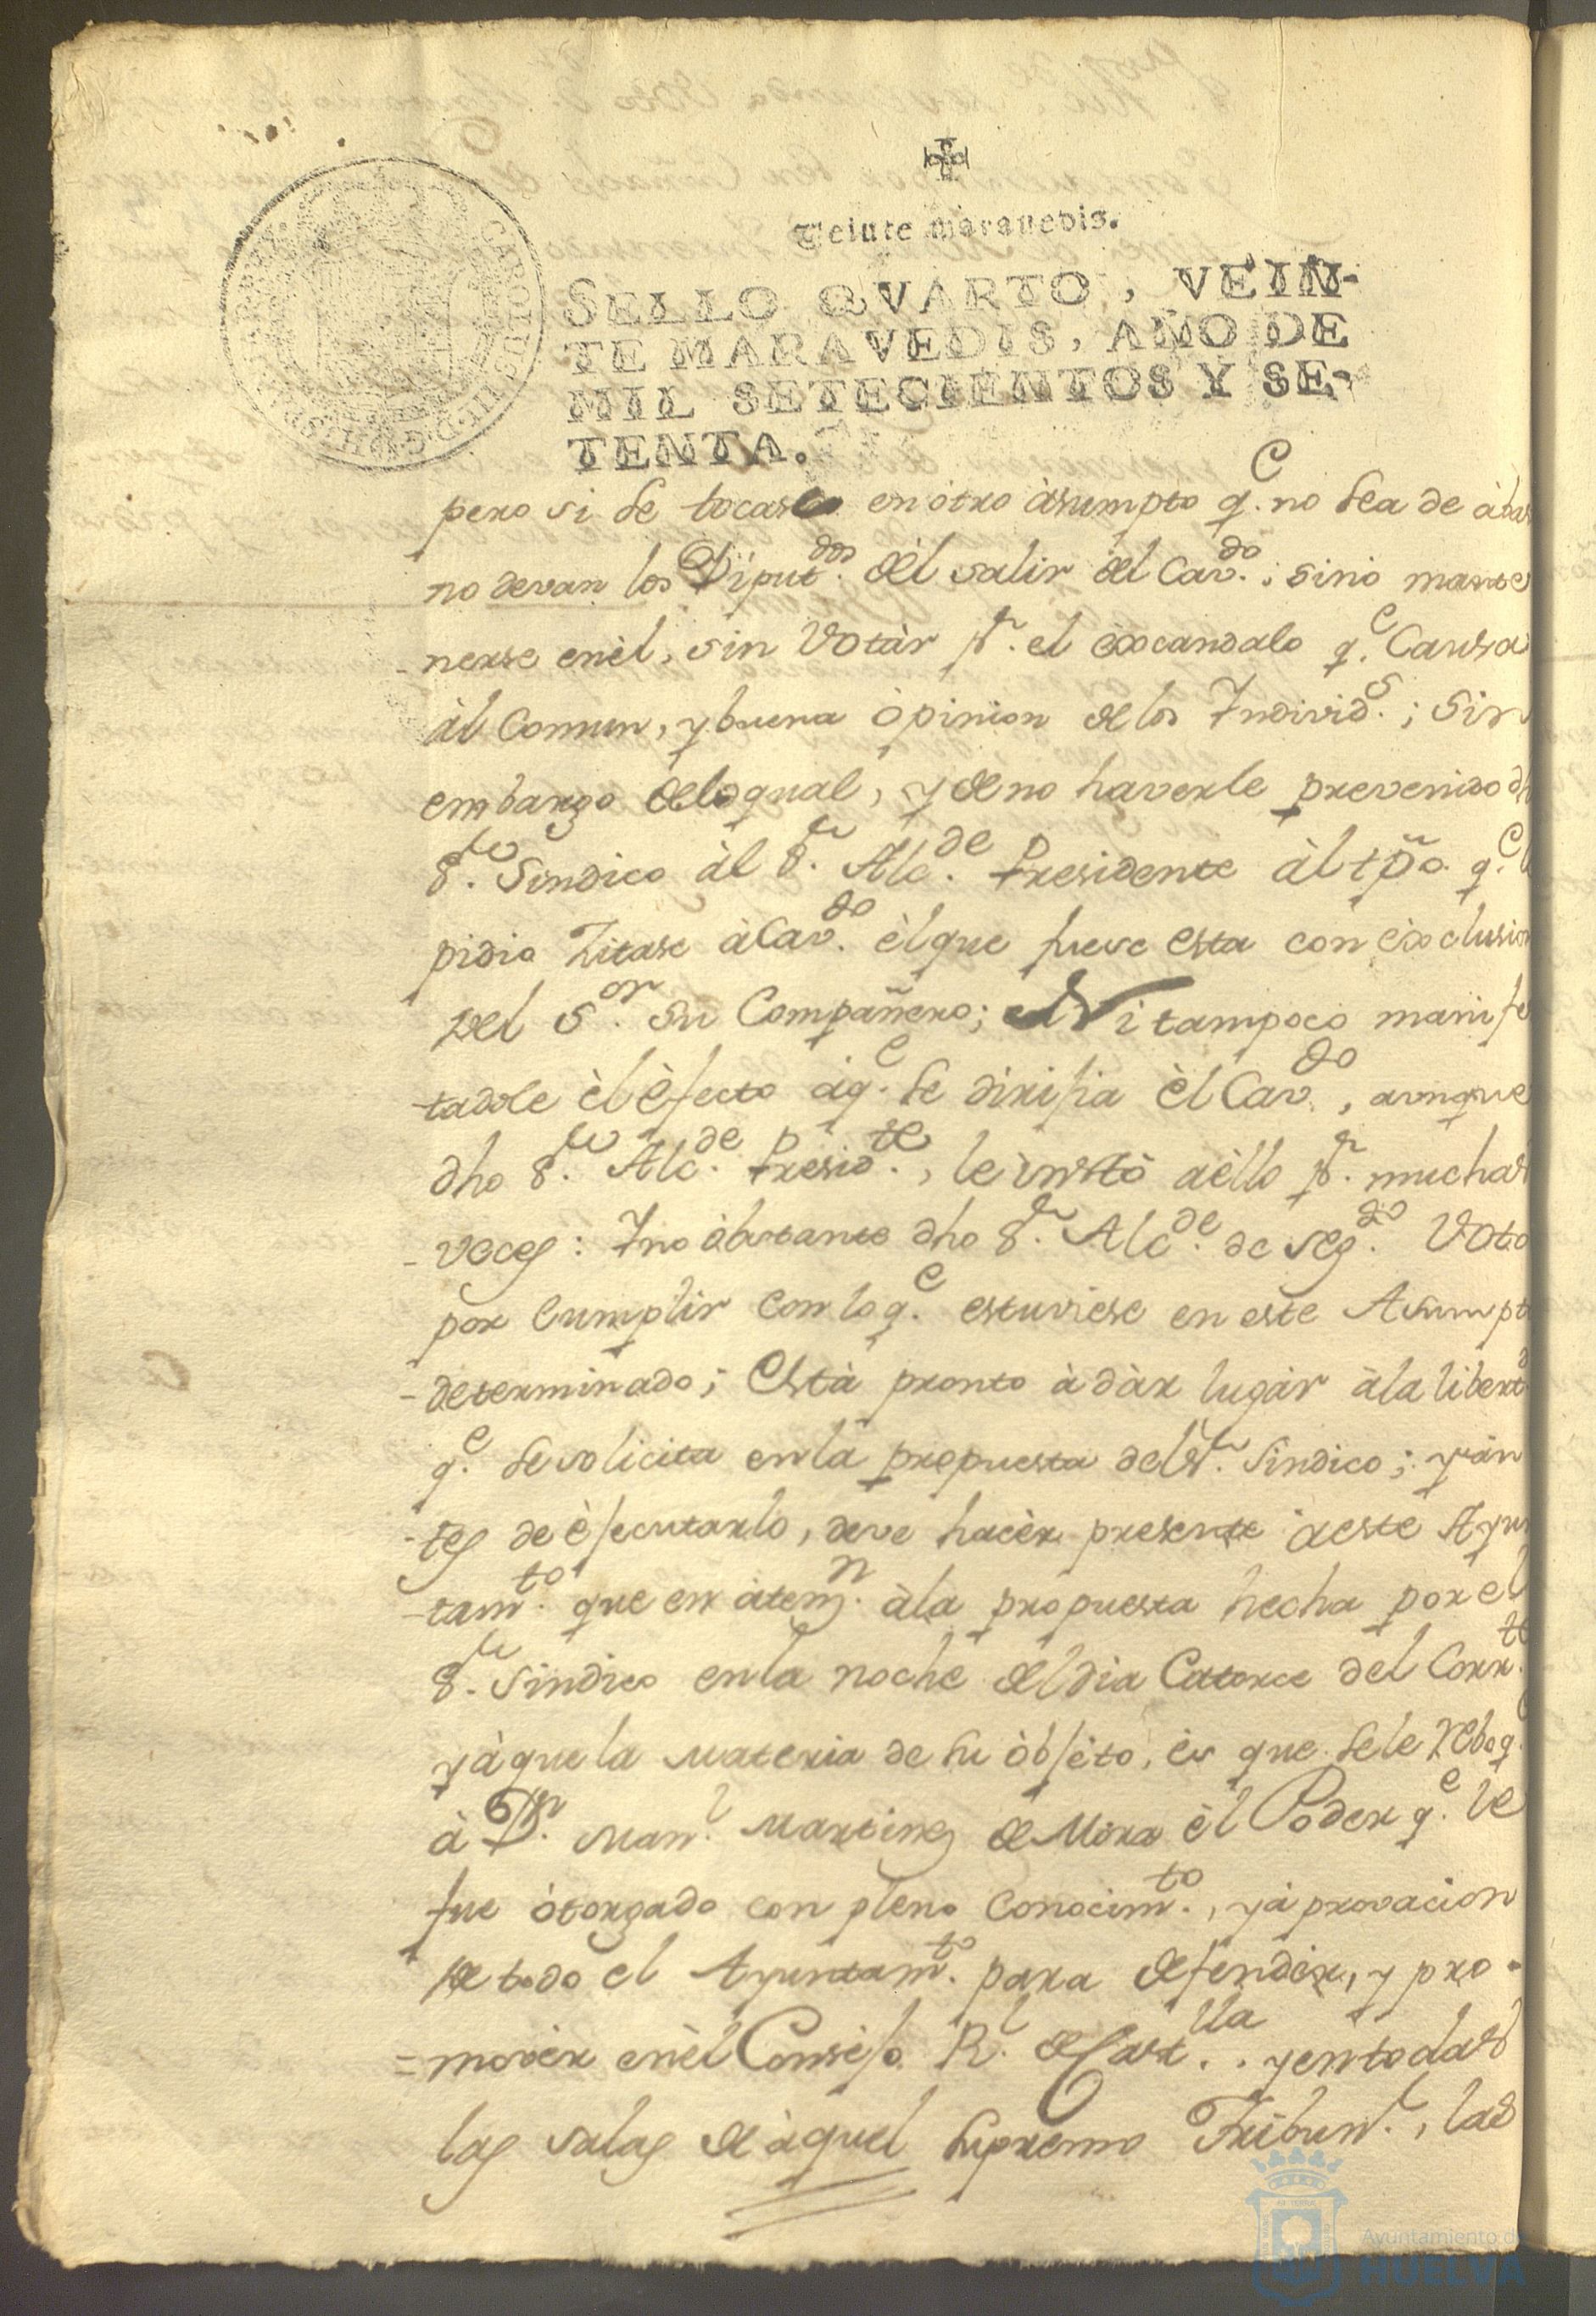 Veinte maravedis.
SELLO QVARTO, VEIN-
TE MARAVEDIS, AÑO DE
MIL SETECIENTOS Y SE-
TENTA.
CAROLUS III D.G. HISPANIAR. REX
pero si se tocase en otro àsumpto q.e no sea de
no devan los Diput.dos del salir del Cav.do; sino mante
nerse enèl, sin Votàr p.r el èxcandalo q.e Causa
àl Comun, y buena òpinion de los Individ.s; Sin
embargo delo qual, y de no haverle prevenido dho
S.r Sindico àl S.r Alc.de Presidente àl tpõ q.e
pidio Zitase à Cav.do èl que fuese esta con èxclusion
del S.or su Compañero; Ni tampoco manifes
tadole èl èfecto àq.e se dirijia èl Cav.do, aunque
dho S.r Alc.de Presid.te, le instò aèllo p.r muchas
- veces: Y no òbstante dho S.r Alc.de de seg.do Voto
por Cumplir con lo q.e estuviese en este Asumpto
- determinado; Està pronto à dàr lugàr àla libert.d
q.e se solicita en la propuesta del S.r Sindico; y àn
- tes de èjecutarlo, deve hacèr presente àeste Ayun
- tam.to que en àtenz.n àla propuesta hecha por el
S.r Sindico en la noche del dia Catorce del Corr.te
y à que la Materia de su òbjèto, ès que se le reboq.e
à D.n Man.l Martinez de Mora èl Poder q.e le
fue òtorgado con pleno Conocim.to, y àprovacion
de todo el Ayuntam.to para defender, y pro-
= movèr enèl Consejo R.l de Cast.lla. y en todas
las salas de àquel Supremo Tribun.l, las
Ayuntamiento de
HUELVA